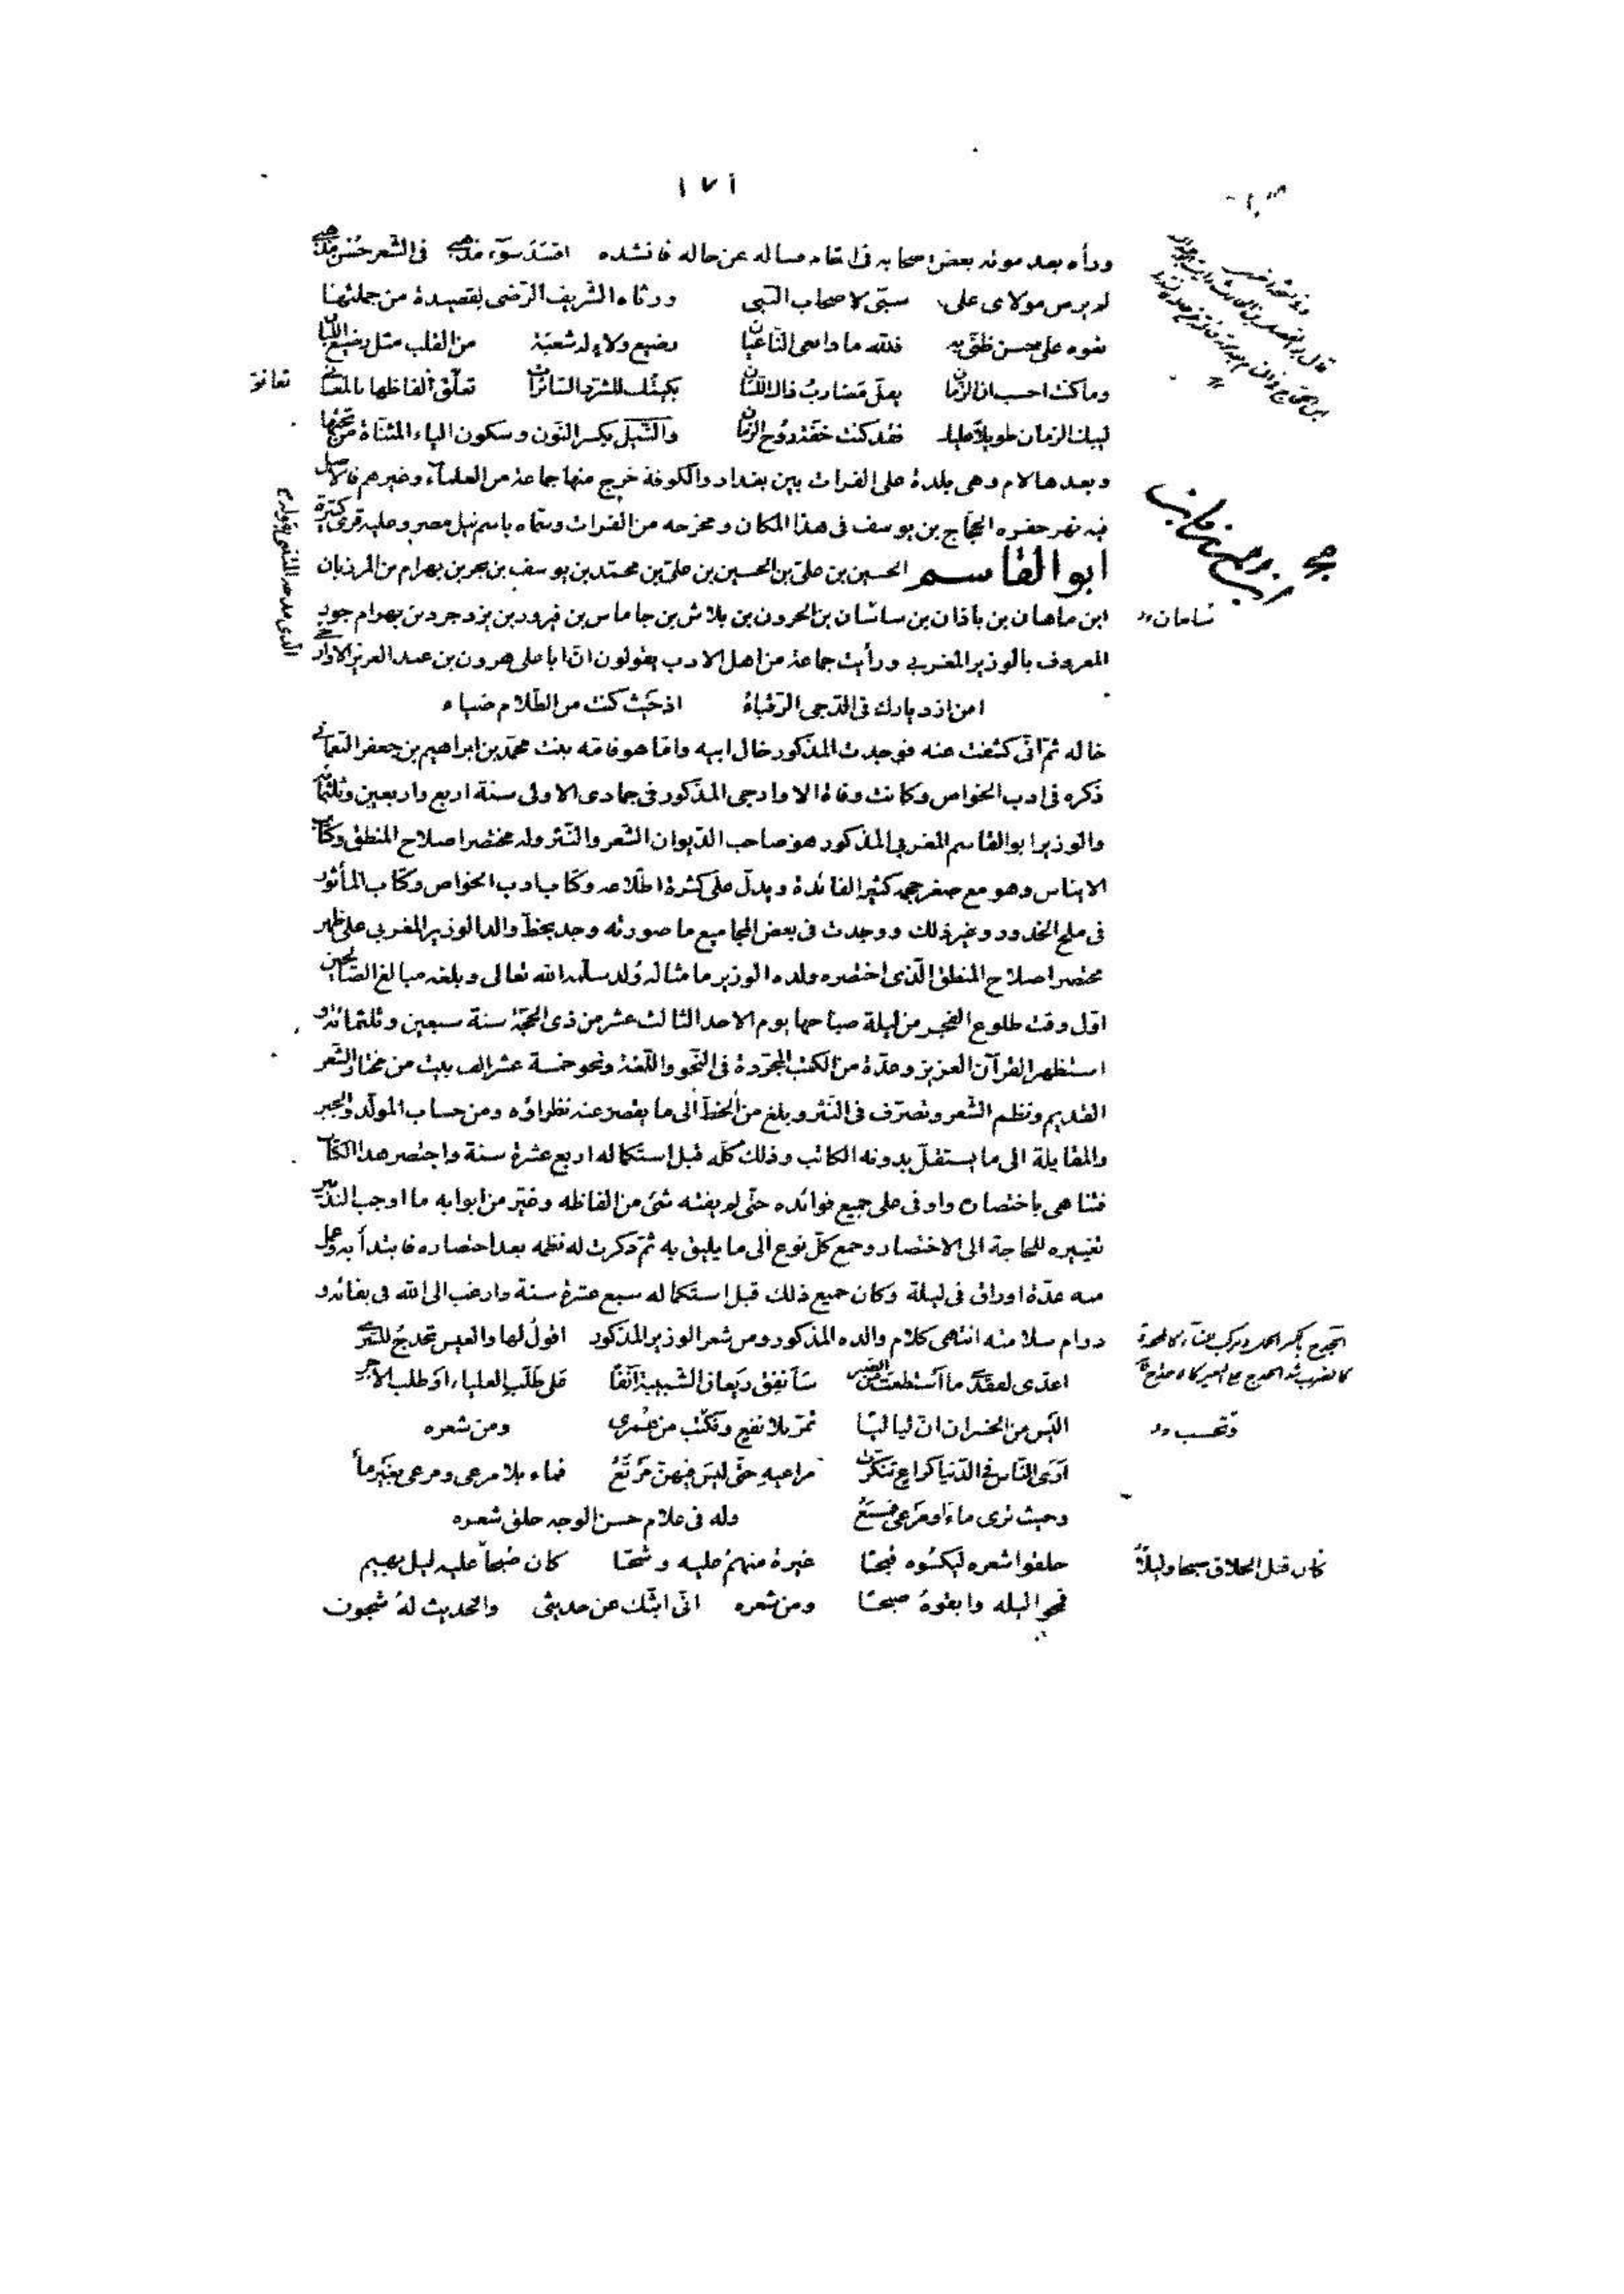 ١٧١
ورأه بعد موته بعض صحابه فى المقام مساله عن حاله فانشده افسد سوء مذهبى فى الشعر حسن مذهبى
لم يرض مولاى على سبى لاصحاب النبى ورثاه الشريف الرضى بقصيدة من جملتها
نعوه على حسن ظنى به فلله ماذا نعى الناعيان رضيع ولاء له شعبة من القلب مثل رضيع اللبان
وما كنت احسب ان الزمان يفل مضارب ذاك اللسان بكيتك للشرد السائرات تعلق الفاظها بالمعانى
ليبك الزمان طويلا عليك فقد كنت خفة روح الزمان والنيل بكسر النون وسكون الياء المثناة من تحتها
وبعدها لام وهى بلدة على الفرات بين بغداد والكوفة خرج منها جماعة من العلماء وغيرهم والاصل
فيه نهر حفره الحجاج بن يوسف فى هذا المكان ومخرجه من الفرات وسماه باسم نيل مصر وعليه قرى كثيرة
ابو القاسم الحسين بن على بن الحسين بن على بن محمد بن يوسف بن بحر بن بهرام بن المرزبان
ابن ماهان بن باذان بن ساسان بن الحرون بن بلاش بن جاماس بن فيرور بن يزدجرد بن بهرام جور
المعروف بالوزير المغربى ورأيت جماعة من اهل الادب يقولون ان ابا على هرون بن عبد العزيز الاوارجى
الذى مدحه المتنبى بقوله
امن ازديارك فى الدجى الرقباء اذ حيث كنت من الظلام ضياء
خاله ثم انى كشفت عنه فوجدت المذكور خال ابيه واما هو فامه بنت محمد بن ابراهيم بن جعفر النعمانى
ذكره فى ادب الخواص وكانت وفاة الاوارجى المذكور فى جمادى الاولى سنة اربع واربعين وثلثمائة
والوزير ابو القاسم المغربى المذكور هو صاحب الديوان الشعر والنثر وله مختصر اصلاح المنطق وكتاب
الايناس وهو مع صغر حجمه كثير الفائدة ويدل على كثرة اطلاعه وكتاب ادب الخواص وكتاب المأثور
فى ملح الخدور وغير ذلك ووجدت فى بعض المجاميع ما صورته وجد بخط والد الوزير المغربى على ظهر
مختصر اصلاح المنطق الذى اختصره ولده الوزير ما مثاله ولد سلمه الله تعالى وبلغه مبالغ الصالحين
اول وقت طلوع الفجر من ليلة صباحها يوم الاحد الثالث عشر من ذى الحجة سنة سبعين وثلثمائة و
استظهر القرآن العزيز وعدة من الكتب المجردة فى النحو واللغة ونحو خمسة عشر الف بيت من مختار الشعر
القديم ونظم الشعر وتصرف فى النثر وبلغ من الخط الى ما يقصر عنه نظراؤه ومن حساب المولد والجبر
والمقابلة الى ما يستقل بدونه الكاتب وذلك كله قبل استكماله اربع عشرة سنة واختصر هذا الكتاب
فتناهى باختصاره واوفى على جميع فوائده حتى لم يفته شىء من الفاظه وغير من ابوابه ما اوجب التدبير
تغييره للحاجة الى الاختصار وجمع كل نوع الى ما يليق به ثم ذكرت له نظمه بعد اختصاره فابتدأ به وعمل
منه عدة اوراق فى ليلة وكان جميع ذلك قبل استكماله سبع عشرة سنة وارغب الى الله فى بقائه و
دوام سلامته انتهى كلام والده المذكور ومن شعر الوزير المذكور اقول لها والعيس تحدج للسرى
اعدى لفقدى ما استطعت من الصبر سأنفق ريعان الشبيبة آنفا على طلب العلياء او طلب الاجر
اليس من الخسران ان لياليا تمر بلا نفع وتحسب من عمرى ومن شعره
ارى الناس فى الدنيا كراع تنكرت مراعيه حتى ليس فيهن مرتع فماء بلا مرعى ومرعى بغير ما
وحيث ترى ماء ومرعى فمسبع وله فى غلام حسن الوجه حلق شعره
حلقوا شعره ليكسوه قبحا غيرة منهم عليه وشحا كان صبحا عليه ليل بهيم
فمحوا ليله وابقوه صبحا ومن شعره انى ابثك عن حديثى والحديث له شجون
ساسان
وتحسب
كان قبل الحلاق صبحا وليلا